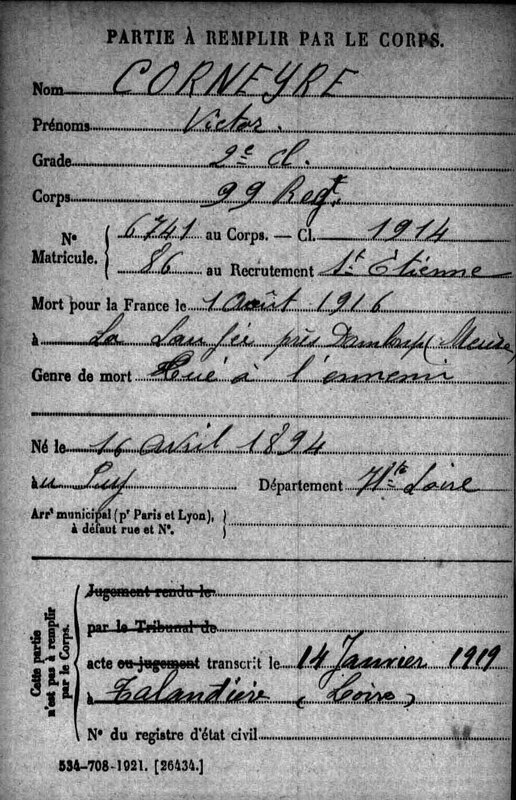 PARTIE À REMPLIR PAR LE CORPS.
Nom CORNEYRE
Prénoms Victor.
Grade 2e cl.
Corps 99 Regt.
No Matricule. 6741 au Corps. — Cl. 1914
86 au Recrutement St Etienne
Mort pour la France le 1 Août 1916
à La Laufée près Damloup (Meuse)
Genre de mort Tué à l'ennemi
Né le 16 avril 1894
au Puy Département Hte Loire
Arrt municipal (pr Paris et Lyon),
à défaut rue et No.
Cette partie n'est pas à remplir par le Corps.
Jugement rendu le
par le Tribunal de
acte ou jugement transcrit le 14 Janvier 1919
à Lalandière (Loire)
No du registre d'état civil
534-708-1921. [26434.]